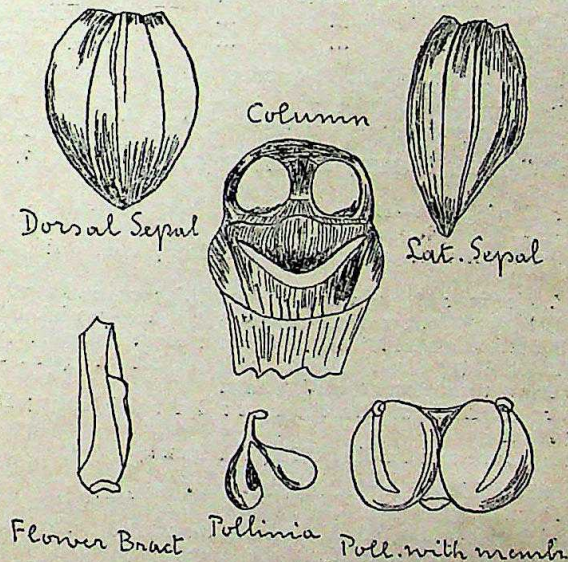 Column
Dorsal Sepal
Lat. Sepal
Flower Bract
Pollinia
Poll. with membr